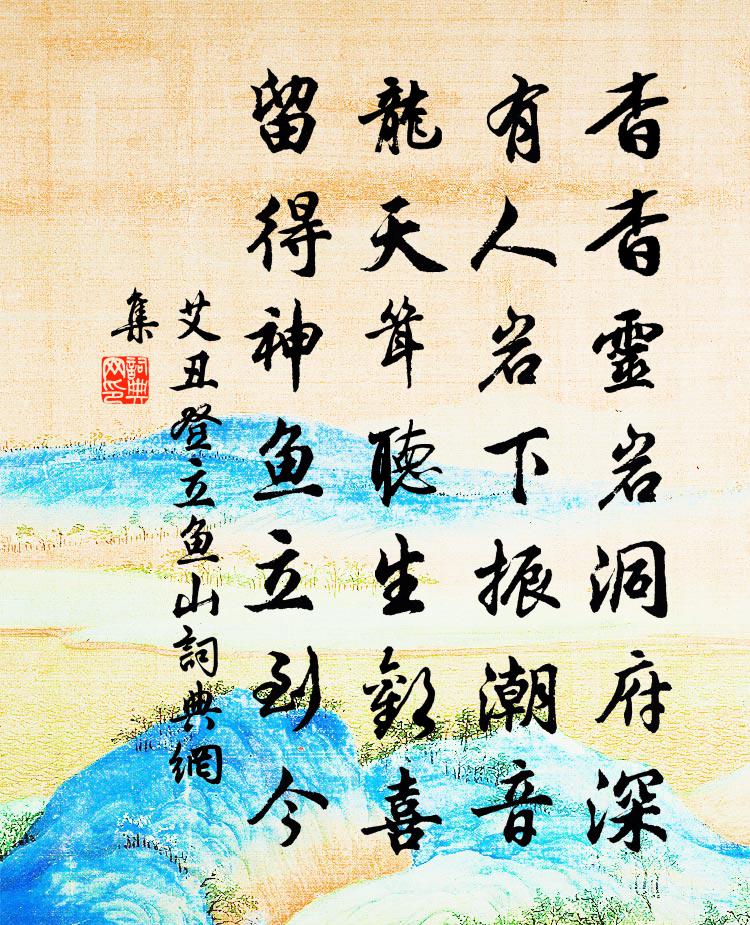 杳杳靈岩洞府深
有人岩下振潮音
龍天耸聽生歡喜
留得神鱼立到今
艾丑登立鱼山詞典網
集
詞典网印